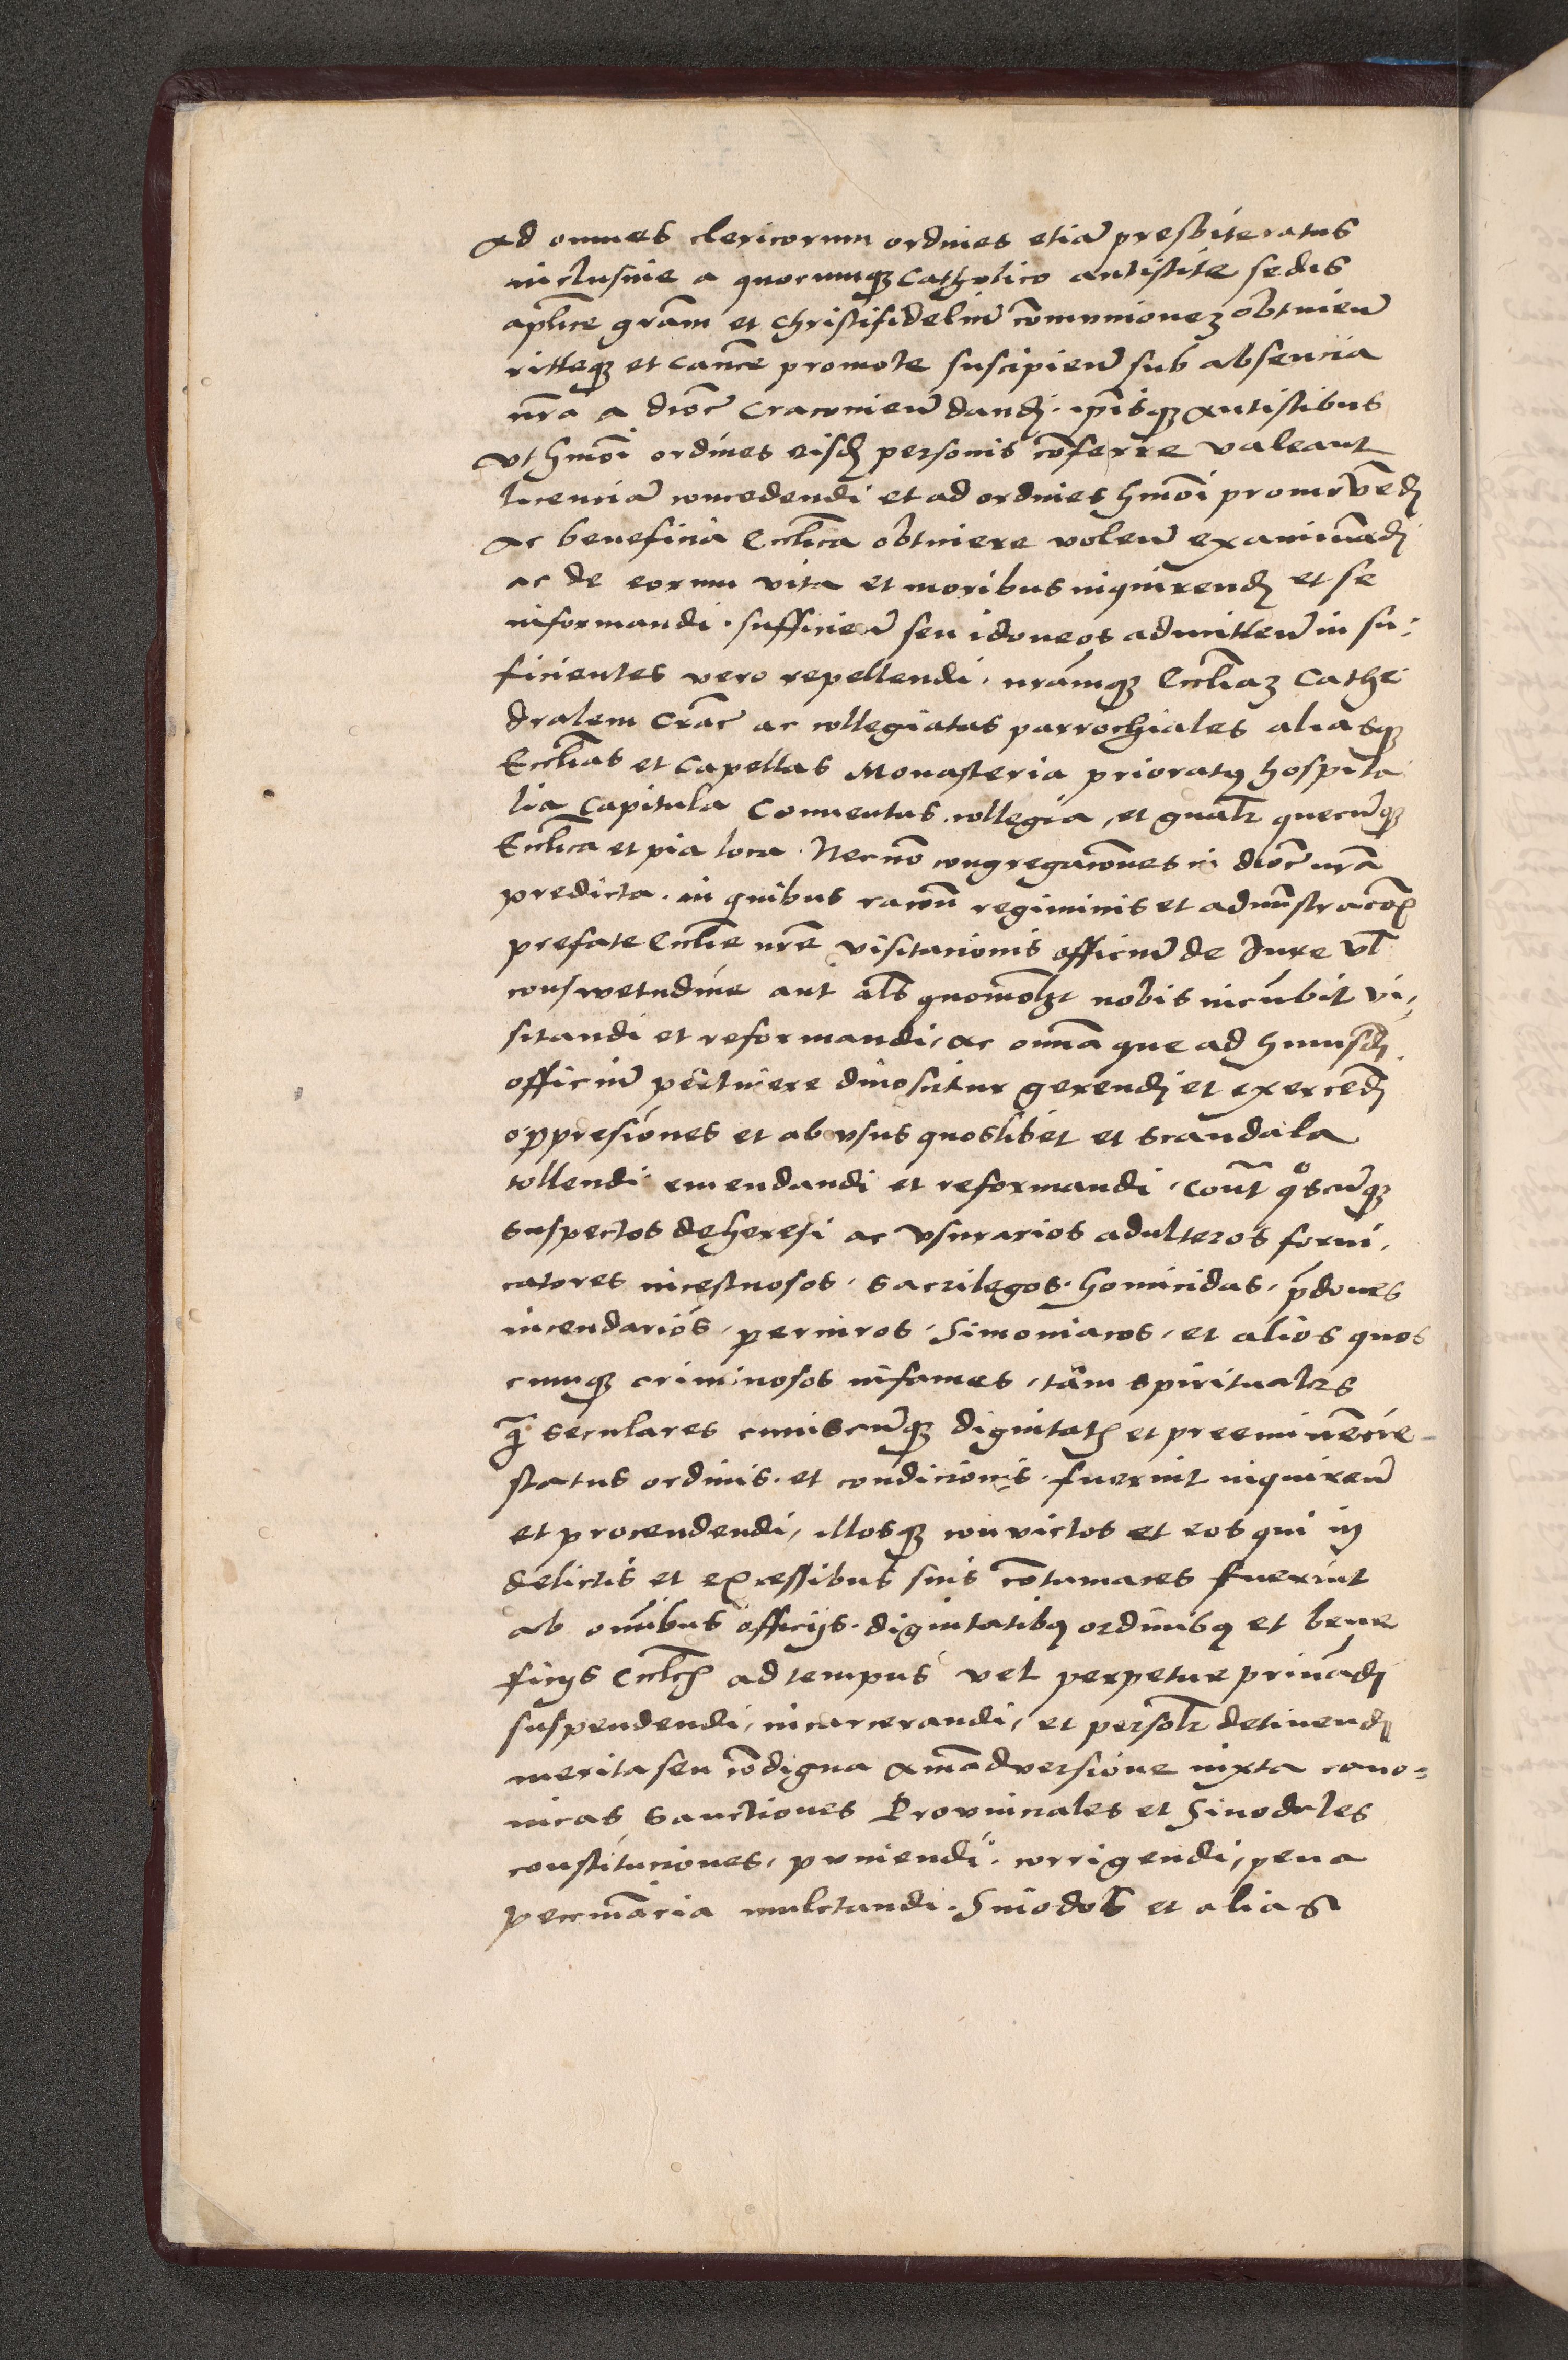 ad omnes clericorum ordines etiā presbiteratus
inclusiue a quocumqꝫ Catholico antistite sedis
aplīce grām et Christifideliū cōmunionez obtinieñ
ritteqꝫ et Canc̄e promote suscipieñ sub absencia
nr̄a a dioc̄ Cracouieñ dandj . ipīsqꝫ antistibus
vt hmōi ordines eisdē personis cōferre valeant
licenciā concedendi et ad ordines hmōi promouēdj
ac beneficia Eccl̄ica obtinere voleñ examinādj
ac de eorum vita et moribus inquirendj et se
informandi . sufficieñ seu idoneos admitteñ in su:
ficientes vero repellendi . nrāmqꝫ Eccl̄iaꝫ Cathe
dralem Crac̄ ac collegiatas parrochiales aliasqꝫ
Eccl̄ias et Capellas Monasteria prioratꝰ hospita
lia Capitula Conuentus . collegia , et gnal̄r quecūqꝫ
Eccl̄ica et pia loca . Nec nō congregacōnes in dioc̄ nrā
predicta . in quibus racōne regiminis et admn̄stracōis
prefate Eccl̄ie nr̄e visitacionis officiū de Iure vl̄
conswetudine aut als̄ quomol̄ꝫt nobis incūbit vi,
sitandi et reformandi , ac omnīa que ad huiusdj
officiū pertinere dinoscūtur gerendj et exercēdj
oppresiones et abvsus quoslibet et scandala
tollendi emendandi et reformandi , Cont̄ qoscūqꝫ
suspectos de heresi ac vsurarios adulteros forni,
catores incestuosos . sacrilegos . homicidas , p̄dones
incendarios , periuros , Simoniacos , et alios quos
cumqꝫ criminosos infames , tam spirituales
q̄ seculares cuiuscūqꝫ dignitatis et preeminēcie
status ordinis . et condicionis . fuerint inquireñ
et procendendi , illosqꝫ convictos et eos qui in
delictis et excessibus suis cōtumaces fuerint
ab omībus officijs . dignitatibꝰ ordinibꝰ et bene
ficijs Eccl̄cis ad tempus vel perpetue priuādj
suspendendi , incarcerandi , et persol̄r detinendj
merita seu cōdigna animāduersione iuxta cano=
nicas sanctiones Prouinciales et Sinodales
constituciones , puniendi . corrigendi , pena
pecuniāria mulctandi . Sinodos et alias